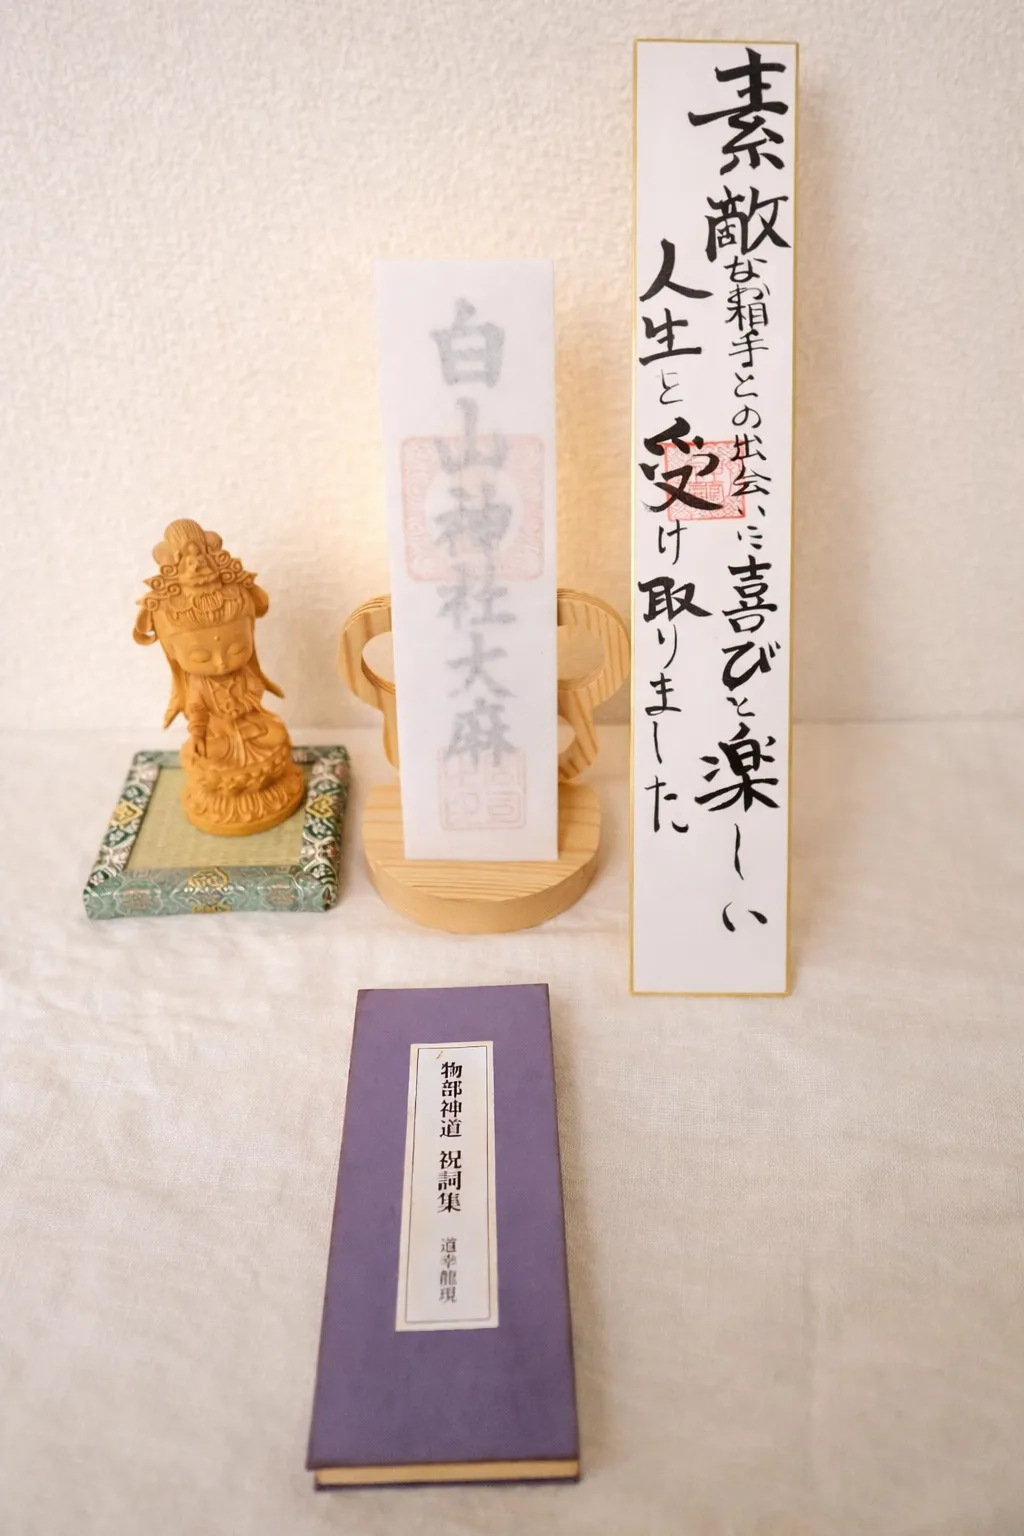 素敵なお相手との出会いに喜びと楽しい
人生を受け取りました
白山神社大麻
物部神道 祝詞集 道幸龍現